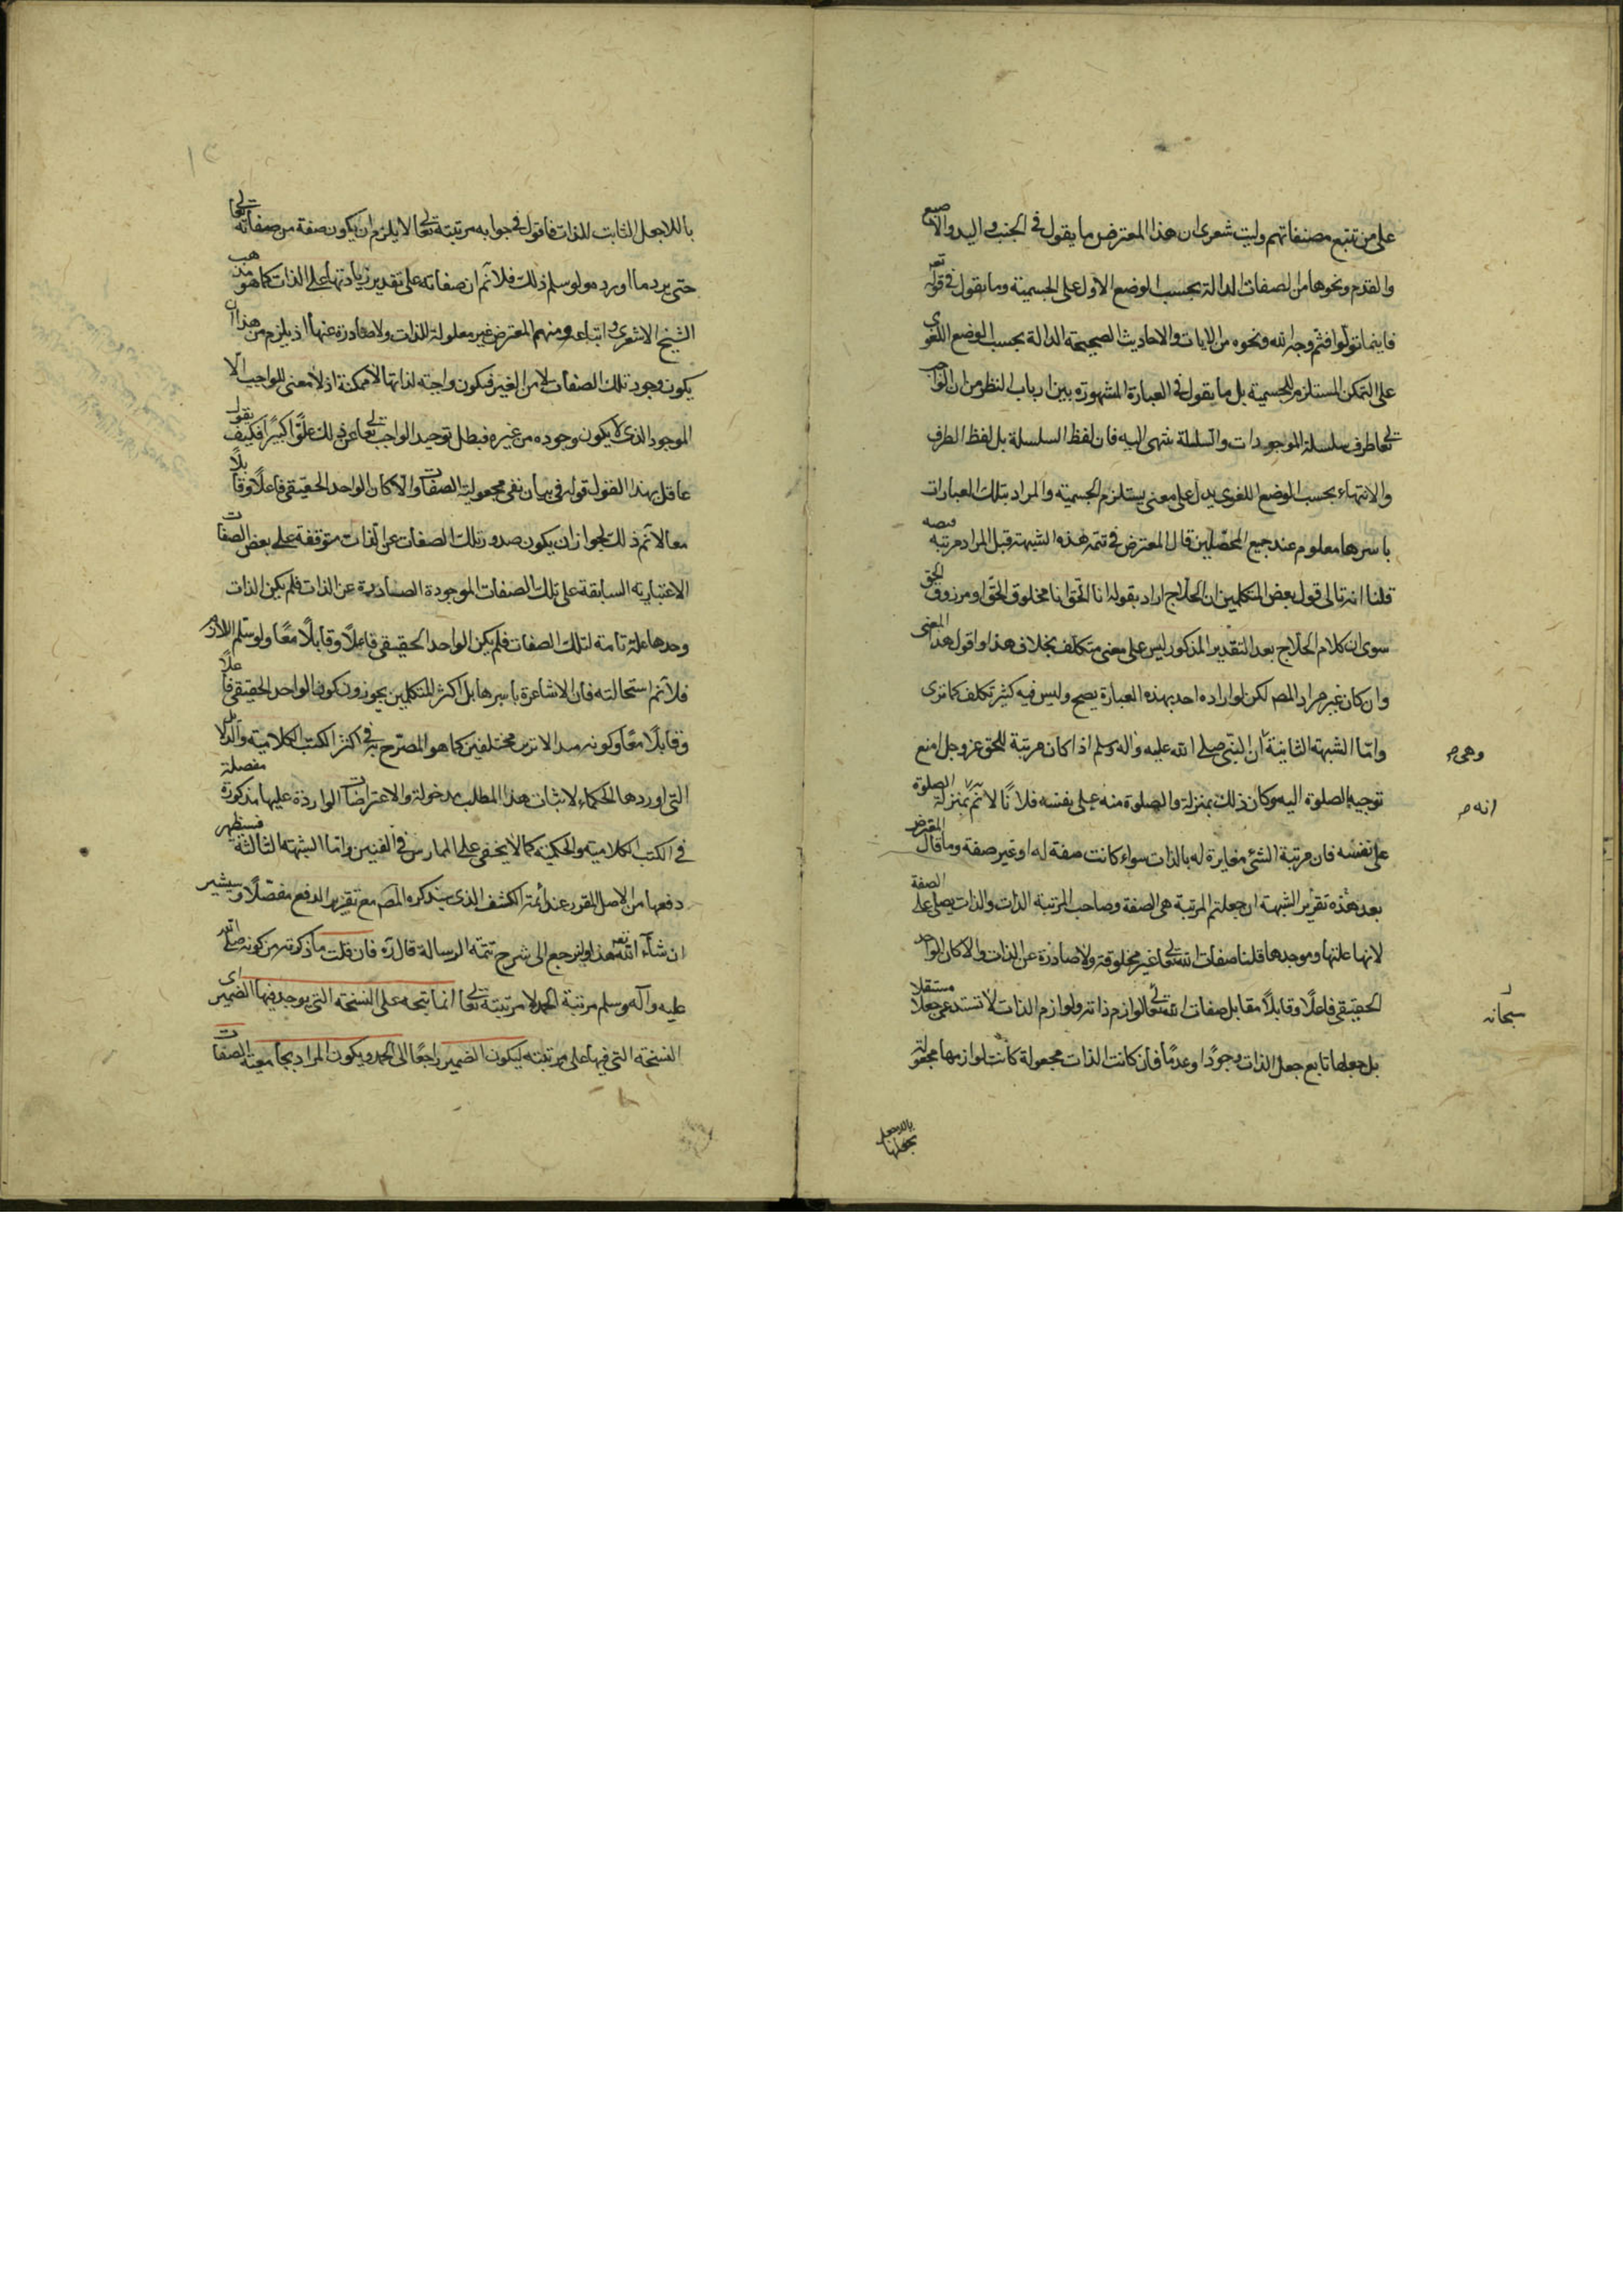 على من تتبع مصنفاتهم وليت شعرى ان هذا المعترض ما يقول فى الجنب واليد والاصبع
والقدم ونحوها من الصفات الدالة بحسب الوضع الاول على الجسمية وما يقول فى قوله تعه
فاينما تولوا فثم وجه الله ونحوه من الايات والاحاديث الصحيحة الدالة بحسب الوضع اللغوى
على التمكن المستلزم للجسمية بل ما يقول فى العبارة المشهورة بين ارباب النظر من ان الواجب
تعالى طرف سلسلة الموجودات والسلسلة ينتهى اليه فان لفظ السلسلة بل لفظ الطرف
والانتهاء بحسب الوضع اللغوى يدل على معنى يستلزم الجسمية والمراد بتلك العبارات
باسرها معلوم عند جميع المحصلين قال المعترض فى تتمة هذه الشبهة قبل المراد مرتبة
قلنا انه تالى قول بعض المتكلمين ان الحلاج اراد بقوله انا الحق انا مخلوق الحق او مرزوق الحق
سوى ان كلام الحلاج بعد التقدير المذكور ليس على معنى متكلف بخلاف هذا واقول هذا المعنى
وان كان غير مراد المص لكن لو اراده احد بهذه العبارة يصح وليس فيه كثير تكلف كما ترى
واما الشبهة الثانية ان النبى صلى الله عليه واله وسلم اذا كان مرتبة للحق عز وجل امنع
وهى صح
توجيه الصلوة اليه وكان ذلك بمنزلة والصلوة منه على نفسه فلانا لا نم بمنزلة الصلوة
انه صح
على نفسه فان مرتبة الشئ مغايرة له بالذات سواء كانت صفة له او غير صفة وما قال المعترض
بعد هذه تقرير الشبهة ان جعلتم المرتبة هى الصفة وصاحب المرتبة الذات والذات يصلى على الصفة
لانها علتها وموجدها قلنا صفات الله تعالى غير مخلوقة ولا صادرة عن الذات والا كان الواحد
الحقيقى فاعلا وقابلا مقابل صفات الله تعالى لوازم ذاته ولوازم الذات لا تستدعى جعلا مستقلا
سبحانه
بل جعلها تابع جعل الذات وجودا وعدما فان كانت الذات مجعولة كانت لوازمها مجعولة
بجعلها
باللاجعل
باللاجعل الثابت للذات فاقول فى جوابه مرتبته تعالى لا يلزم ان يكون صفة من صفاته تعالى
حتى يرد ما اورده ولو سلم ذلك فلا نم ان صفاته على تقدير زيادتها على الذات كما هو مذهب
الشيخ الاشعرى واتباعه ومنهم المعترض غير معلولة للذات ولا صادرة عنها اذ يلزم من هذا ان
يكون وجود تلك الصفات لا من الغير فيكون واجبة لذاتها لا ممكنة اذ لا معنى للواجب الا
الموجود الذى لا يكون وجوده من غيره فبطل توحيد الواجب تعالى عن ذلك علوا كبيرا فكيف يقول
عاقل بهذا القول قوله فى بيان نفى مجعولية الصفات والا كان الواحد الحقيقى فاعلا وقابلا
معا لا نم ذلك لجواز ان يكون صدور تلك الصفات عن الذات متوقفة على بعض الصفات
الاعتبارية السابقة على تلك الصفات الموجودة الصادرة عن الذات فلم يكن الذات
وحدها علة تامة لتلك الصفات فلم يكن الواحد الحقيقى فاعلا وقابلا معا ولو سلم اللازم
فلا نم استحالته فان الاشاعرة باسرها بل اكثر المتكلمين يجوزون كون الواحد الحقيقى فاعلا
وقابلا معا وكونه مبدا لاثرين مختلفين كما هو المصرح به فى اكثر الكتب الكلامية والدلائل
التى اوردها الحكماء لاثبات هذا المطلب مدخولة والاعتراضات الواردة عليها مذكورة مفصلة
فى الكتب الكلامية والحكمية كما لا يخفى على الممارس فى الفنين واما الشبهة الثالثة فستظهر
دفعها من الاصل المقرر عند ائمة الكشف الذى سيذكره المص مع تقرير الدفع مفصلا وسيشير
ان شاء الله تعه هذا ولنرجع الى شرح تتمة الرسالة قال ره فان قلت ما ذكرته من كونه صلى الله
عليه وآله وسلم مرتبة الحمد لا مرتبته تعالى انما يتجه على النسخة التى يوجد فيها الضمير اى
النسخة التى فيها على مرتبته ليكون الضمير راجعا الى الحمد ويكون المراد بجامعيته الصفات